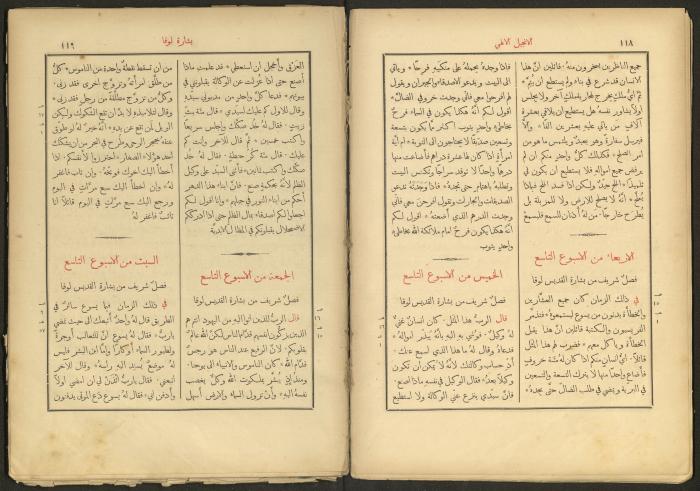 ١١٨
الانجيل الالهي
جميع الناظرين يسخرون منه * قائلين انَّ هذا
الانسان قد شرع في بناءٍ ولم يستطع ان يتم *
ام ايُّ ملكٍ يخرج لمحاربة ملكٍ آخر ولا يجلس
اولاً يشاور نفسهُ هل يستطيع ان يلاقي بعشرة
آلاف من ياتي عليه بعشرين الفًا * والَّا
فيرسل سفارةً وهو بعيدٌ ويلتمس ما هو من
امر الصلح * فكذلك كلُّ واحدٍ منكم ان لم
يرفض جميع اموالهِ فلا يستطيع ان يكون لي
تلميذًا * الملح جيّدٌ ولكن اذا فسد الملح فبماذا
يُملَّح * انهُ لا يصلح للارض ولا للمزبلة بل
يطرح خارجًا * من لهُ اذنان للسمع فليسمع
الاربعاء من الاسبوع التاسع
فصلٌ شريف من بشارة القديس لوقا
في ذلك الزمان كان جميع العشَّارين
والخطأة يدنون من يسوع ليستمعوهُ * فتذمَّر
الفريسيون والكتبة قائلين انَّ هذا يقبل
الخطأة وياكل معهم * فضرب لهم هذا المثل
قائلاً * ايُّ انسانٍ منكم اذا كان لهُ مئة خروفٍ
فأضاع واحدًا منها لا يترك التسعة والتسعين
في البرية ويمضي في طلب الضالِّ حتى يجدهُ *
فاذا وجدهُ يحملهُ على منكبيهِ فرحًا * وياتي
الى البيت ويدعو الاصدقاء والجيران ويقول
لهم افرحوا معي فانّي وجدت خروفي الضالَّ *
اقول لكم انهُ هكذا يكون في السماء فرحٌ
بخاطئٍ واحدٍ يتوب اكثر ممَّا يكون بتسعة
وتسعين صدّيقًا لا يحتاجون الى التوبة * ام ايَّة
امرأةٍ اذا كان لها عشرة دراهم فأضاعت منها
درهمًا واحدًا لا توقد سراجًا وتكنس البيت
وتطلبهُ باهتمامٍ حتى تجدهُ * فاذا وجدَتهُ تدعو
الصديقات والجارات وتقول افرحن معي فانّي
وجدت الدرهم الذي أضعتهُ * اقول لكم
انهُ هكذا يكون فرحٌ امام ملائكة الله بخاطئٍ
واحدٍ يتوب
الخميس من الاسبوع التاسع
فصلٌ شريف من بشارة القديس لوقا
قال الربُّ هذا المثل * كان انسانٌ غنيٌّ
لهُ وكيلٌ * فوُشي بهِ اليهِ بانَّهُ يبذّر اموالهُ *
فدعاهُ وقال لهُ ما هذا الذي اسمع عنك *
أدِّ حساب وكالتك لانَّهُ لا يمكن ان تكون
وكيلاً بعدُ * فقال الوكيل في نفسهِ ماذا اصنع *
فانَّ سيّدي ينزع عني الوكالة ولا استطيع
بشارة لوقا
١١٩
العزق وأخجل ان استعطي * قد علمتُ ماذا
أصنع حتى اذا عُزلت عن الوكالة يقبلونني في
بيوتهم * فدعا كلَّ واحدٍ من مديوني سيّدهِ
وقال للاول كم عليك لسيدي * قال مئة بثِّ
زيتٍ * فقال لهُ خُذ صكَّك واجلس سريعًا
واكتب خمسين * ثمَّ قال للآخر وانت كم
عليك * قال مئة كُرِّ حنطةٍ * فقال لهُ خُذ
صكَّك واكتب ثمانين * فأثنى السيد على وكيل
الظلم لانَّهُ بحكمةٍ صنع * فانَّ ابناء هذا الدهر
احكم من ابناء النور في جيلهم * وانا اقول لكم
اجعلوا لكم اصدقاء بمال الظلم حتى اذا ادرككم
الاضمحلال يقبلونكم في المظالّ الابدية
الجمعة من الاسبوع التاسع
فصلٌ شريف من بشارة القديس لوقا
قال الربُّ للذين اتوا اليهِ من اليهود انتم هم
الذين يزكّون انفسهم قدَّام الناس لكنَّ الله عالمٌ
بقلوبكم * لانَّ الرفيع عند الناس هو رجسٌ
قدَّام الله * كان الناموس والانبياء الى يوحنا *
ومنذئذٍ يُبشَّر بملكوت الله وكلٌّ يغصب
نفسهُ اليهِ * وانَّ تزول السماء والارض أسهل
من ان تسقط نقطةٌ واحدة من الناموس * كلُّ
من طلَّق امرأتهُ وتزوَّج اخرى فقد زنى *
وكلُّ من تزوَّج مطلَّقةً من رجلٍ فقد زنى *
وقال لتلاميذهِ لا بدَّ ان تقع الشكوك ولكن
الويل لمن تقع عن يدهِ * انَّهُ خيرٌ لهُ لو طُوّق
عنقهُ بحجر الرحى وطُرح في البحر من ان يشكّك
احد هؤلاء الصغار * احترزوا لأنفسكم * اذا
أخطأ اليك اخوك فوبّخهُ * وان تاب فاغفر
لهُ * وان اخطأ اليك سبع مرَّاتٍ في اليوم
ورجع اليك سبع مرَّاتٍ في اليوم قائلاً انا
تائبٌ فاغفر لهُ
السبت من الاسبوع التاسع
فصلٌ شريف من بشارة القديس لوقا
في ذلك الزمان فيما يسوع سائرٌ في
الطريق قال لهُ واحدٌ أتبعك الى حيث تمضي
ياربّ * فقال لهُ يسوع انَّ للثعالب أوجرةً
ولطيور السماء أوكارًا وامَّا ابن البشر فليس
لهُ موضعٌ يُسند اليهِ رأسهُ * وقال للآخر
اتبعني * فقال ياربّ ائذن لي ان امضي اولاً
وأدفن ابي * فقال لهُ يسوع دَع الموتى يدفنون